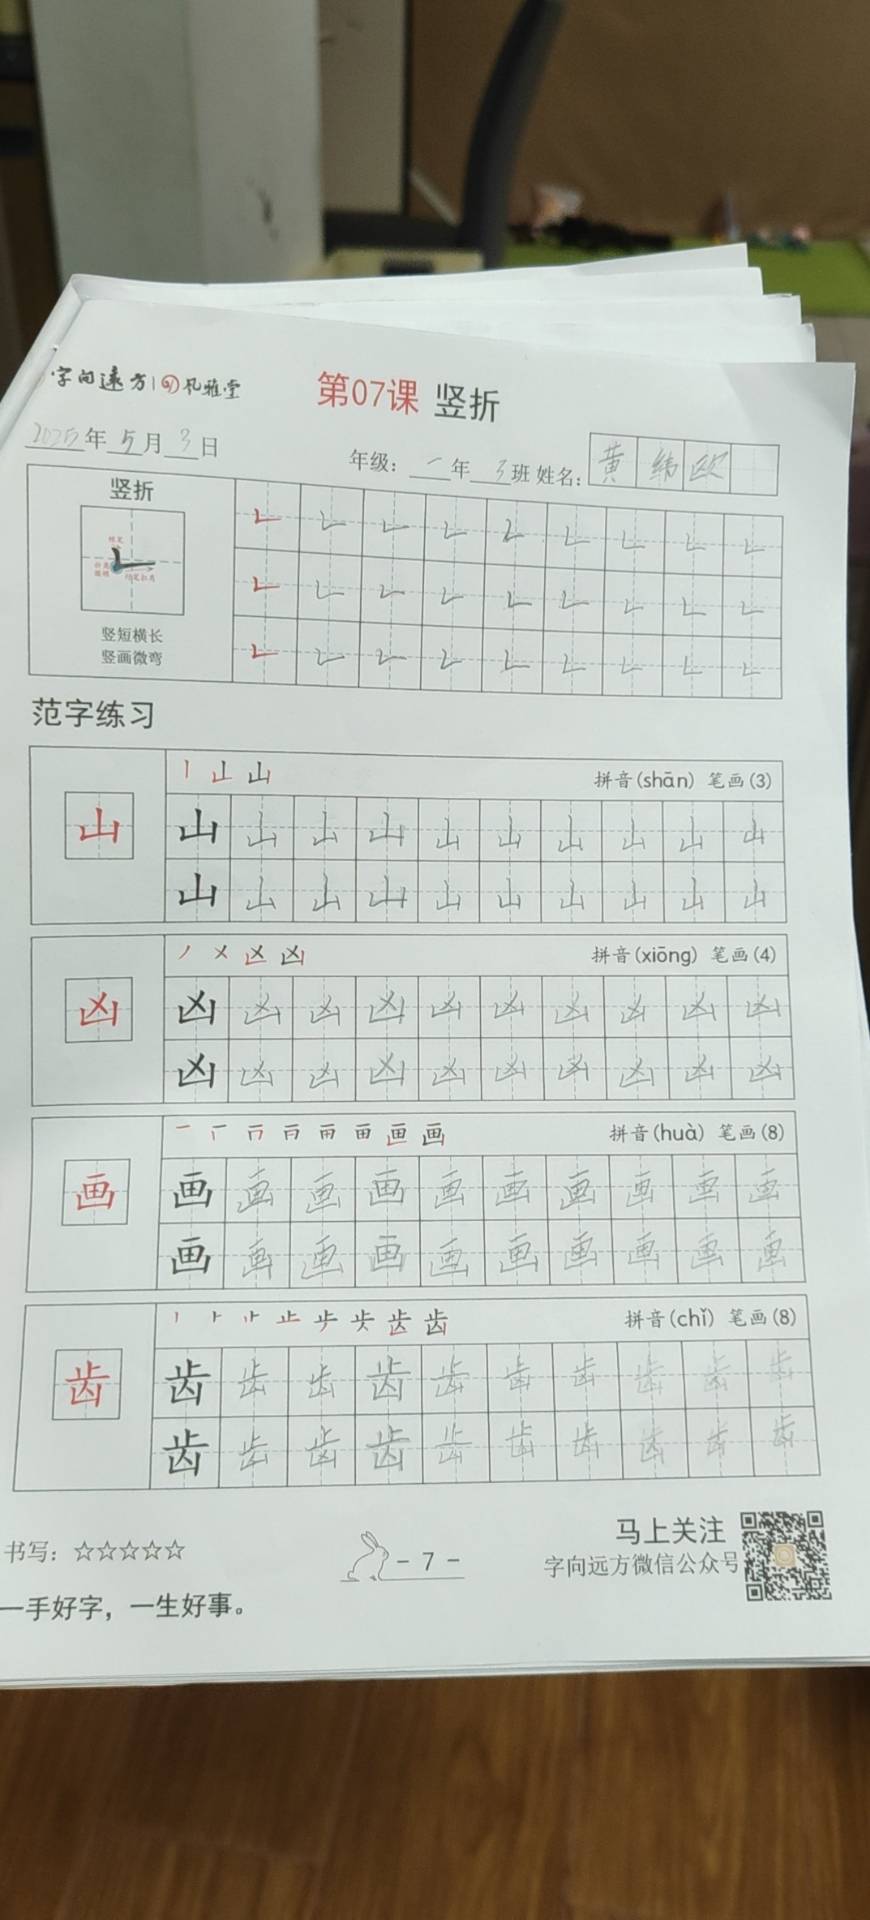 字向远方 风雅堂
第07课 竖折
2025年5月3日
年级：一年3班 姓名：黄纬欧
竖折
竖短横长
竖画微弯
范字练习
山 拼音(shān) 笔画(3)
山 山 山 山 山 山 山 山 山 山 山
山 山 山 山 山 山 山 山 山 山
拼音(xiōng) 笔画(4)
凶 凶 凶 凶 凶 凶 凶 凶 凶 凶 凶
凶 凶 凶 凶 凶 凶 凶 凶 凶 凶
拼音(huà) 笔画(8)
画 画 画 画 画 画 画 画 画 画 画
画 画 画 画 画 画 画 画 画 画
拼音(chǐ) 笔画(8)
齿 齿 齿 齿 齿 齿 齿 齿 齿 齿 齿
齿 齿 齿 齿 齿 齿 齿 齿 齿 齿
书写：☆☆☆☆☆
- 7 -
马上关注
字向远方微信公众号
一手好字，一生好事。